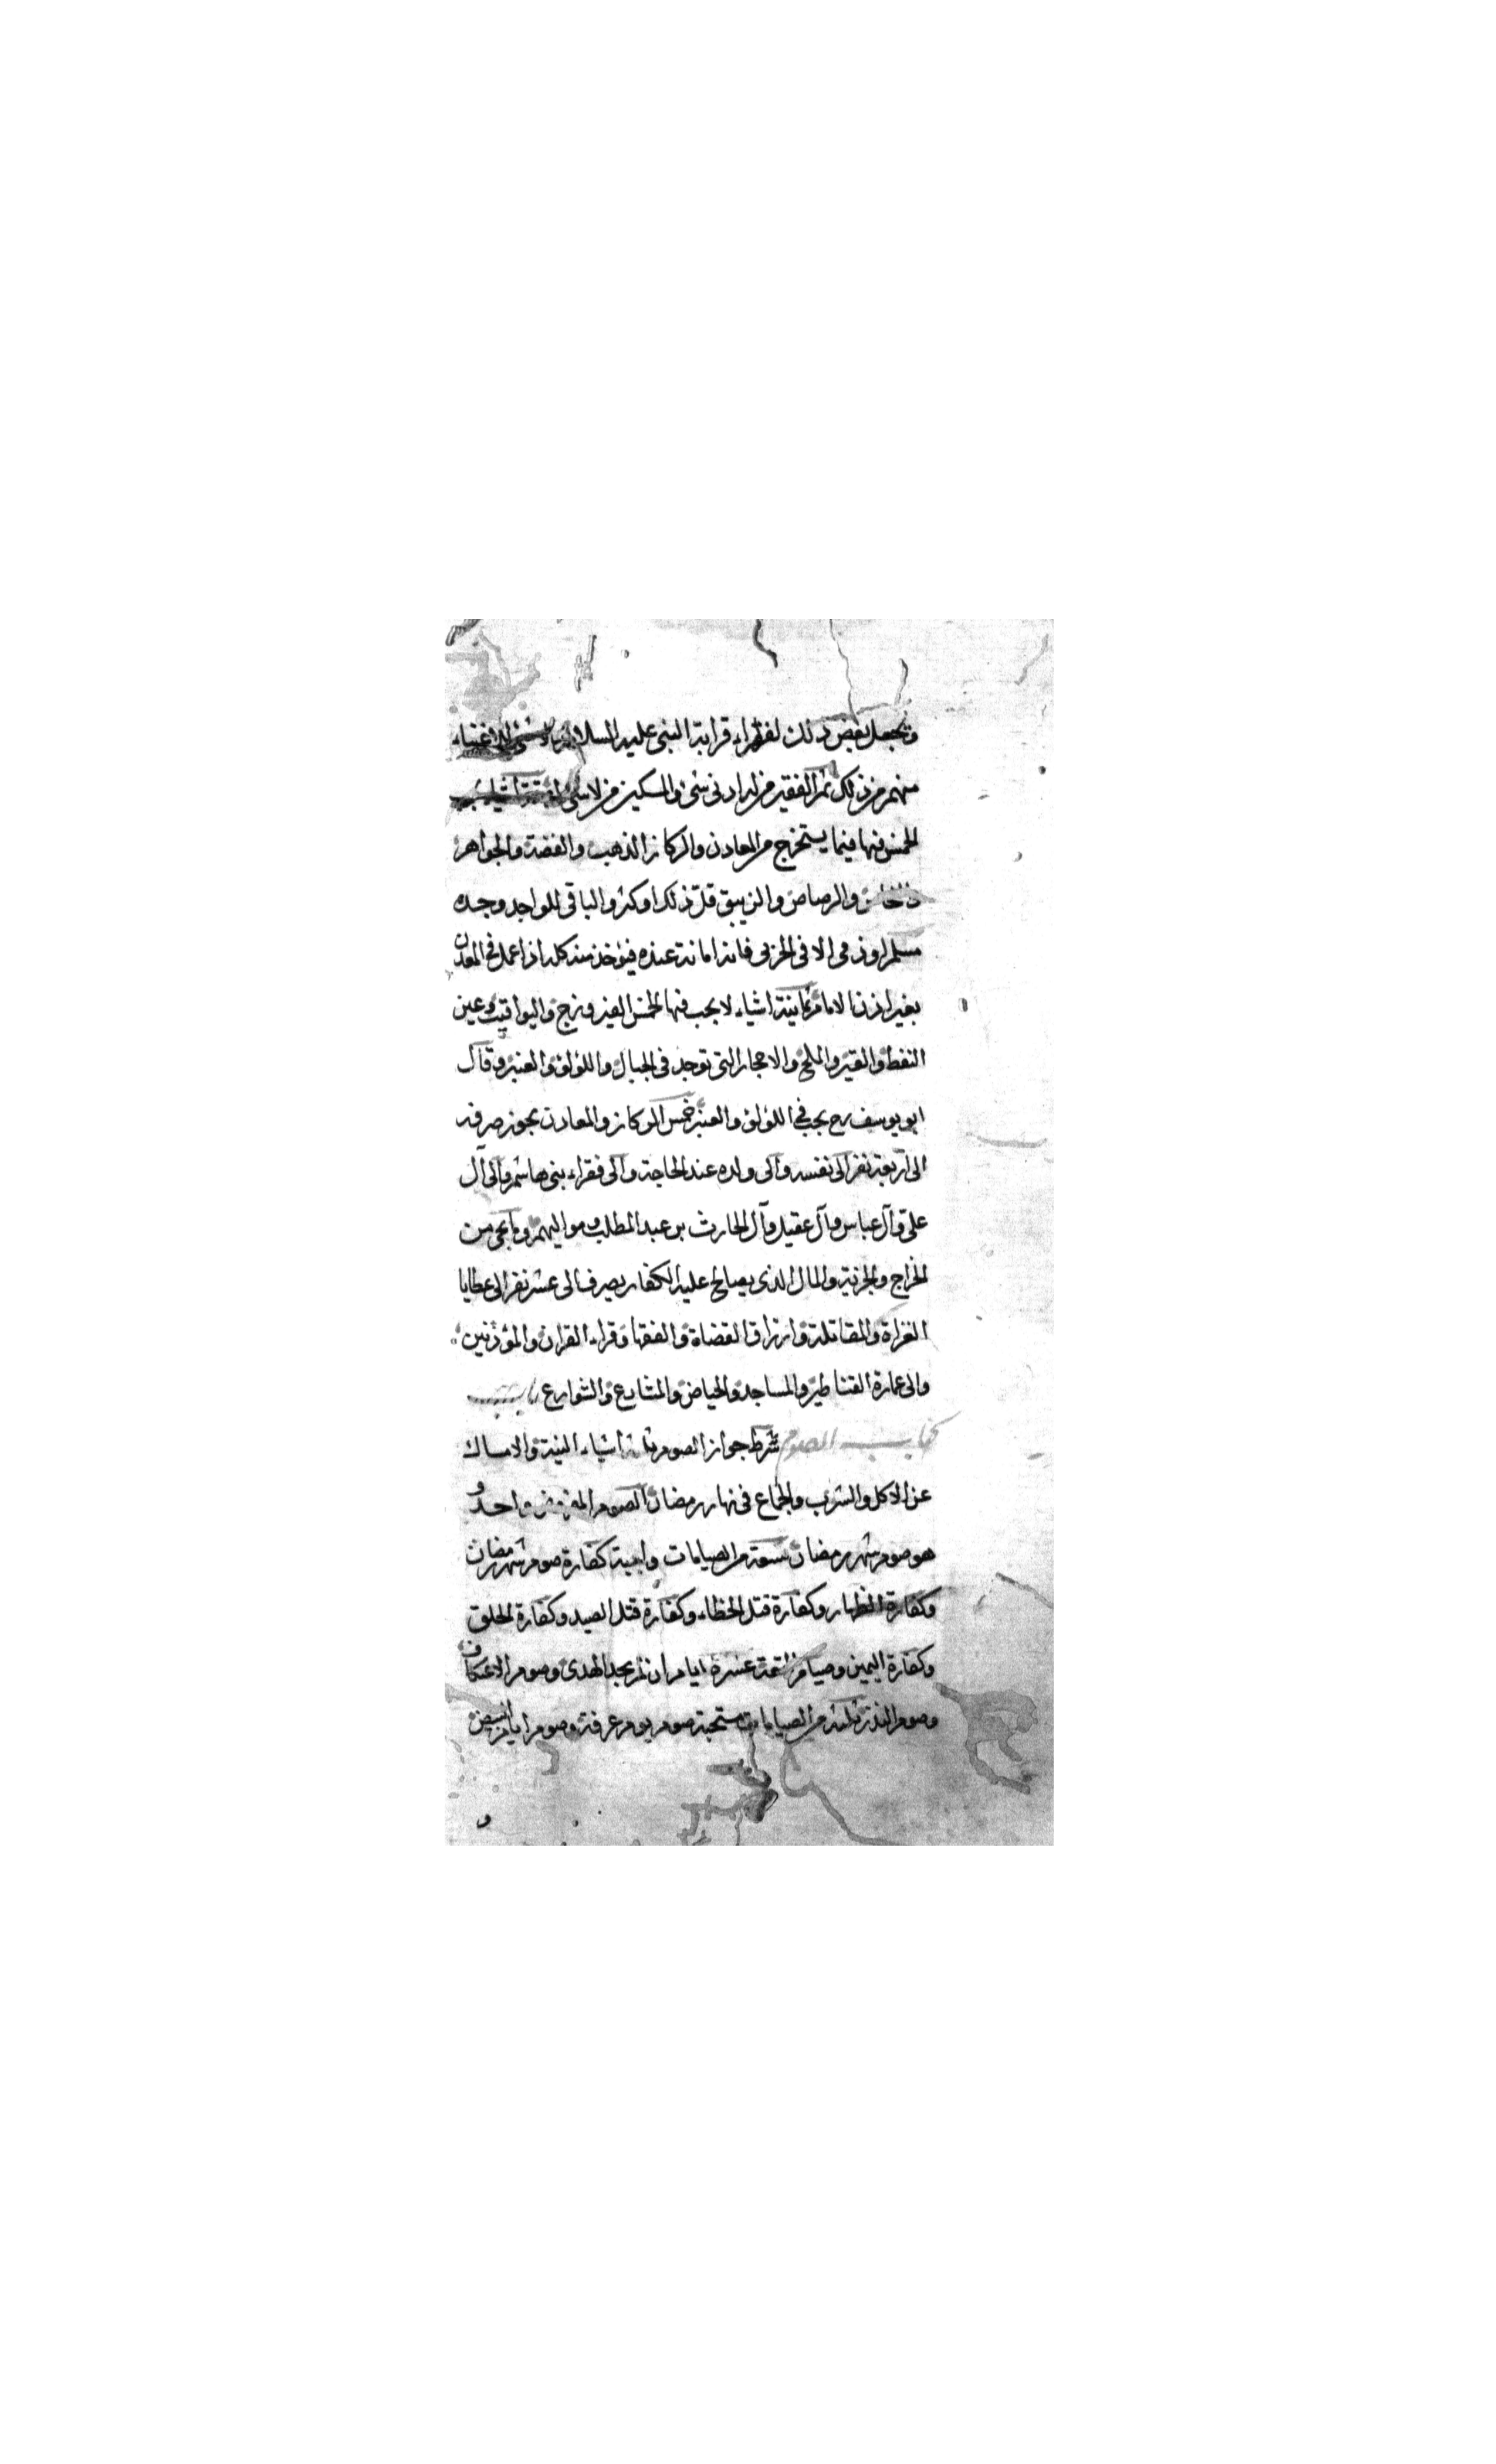 ويجعل بعض ذلك لفقراء قرابة النبي عليه السلام ولا شئ للاغنياء
منهم من ذلك ثم الفقير من له ادنى شئ والمسكين من لا شئ له
الخمس فيها فيما يستخرج من المعادن والركاز الذهب والفضة والجواهر
والرصاص والزيبق قل ذلك او كثر والباقي للواجد وجده
مسلم او ذمي الا في الحربي فانه امانة عنده فيؤخذ منه كله اذا عمل في المعدن
بغير اذن الامام ثمانية اشياء لا يجب فيها الخمس الفيروزج واليواقيت وعين
النفط والقير والملح والاحجار التي توجد في الجبال واللؤلؤ والعنبر وقال
ابو يوسف رح يجب في اللؤلؤ والعنبر خمس الركاز والمعادن يجوز صرفه
الى اربعة نفر الى نفسه والى ولده عند الحاجة والى فقراء بني هاشم والى آل
علي وآل عباس وآل عقيل وآل الحارث بن عبد المطلب ومواليهم وما يجئ من
الخراج والجزية والمال الذي يصالح عليه الكفار يصرف الى عشر نفر الى عطايا
الغزاة والمقاتلة وارزاق القضاة والفقها وقراء القران والمؤذنين
والى عمارة القناطير والمساجد والحياض والمشارع والشوارع
كتاب الصوم شرط جواز الصوم ثلثة اشياء النية والامساك
عن الاكل والشرب والجماع في نهار رمضان الصوم المفروض واحد و
هو صوم شهر رمضان تسعة من الصيامات واجبة كفارة صوم شهر رمضان
وكفارة الظهار وكفارة قتل الخطاء وكفارة قتل الصيد وكفارة الحلق
وكفارة اليمين وصيام المتعة عشرة ايام ان لم يجد الهدى وصوم الاعتكاف
وصوم النذر ثلثة من الصيامات مستحبة صوم يوم عرفة وصوم ايام البيض
و